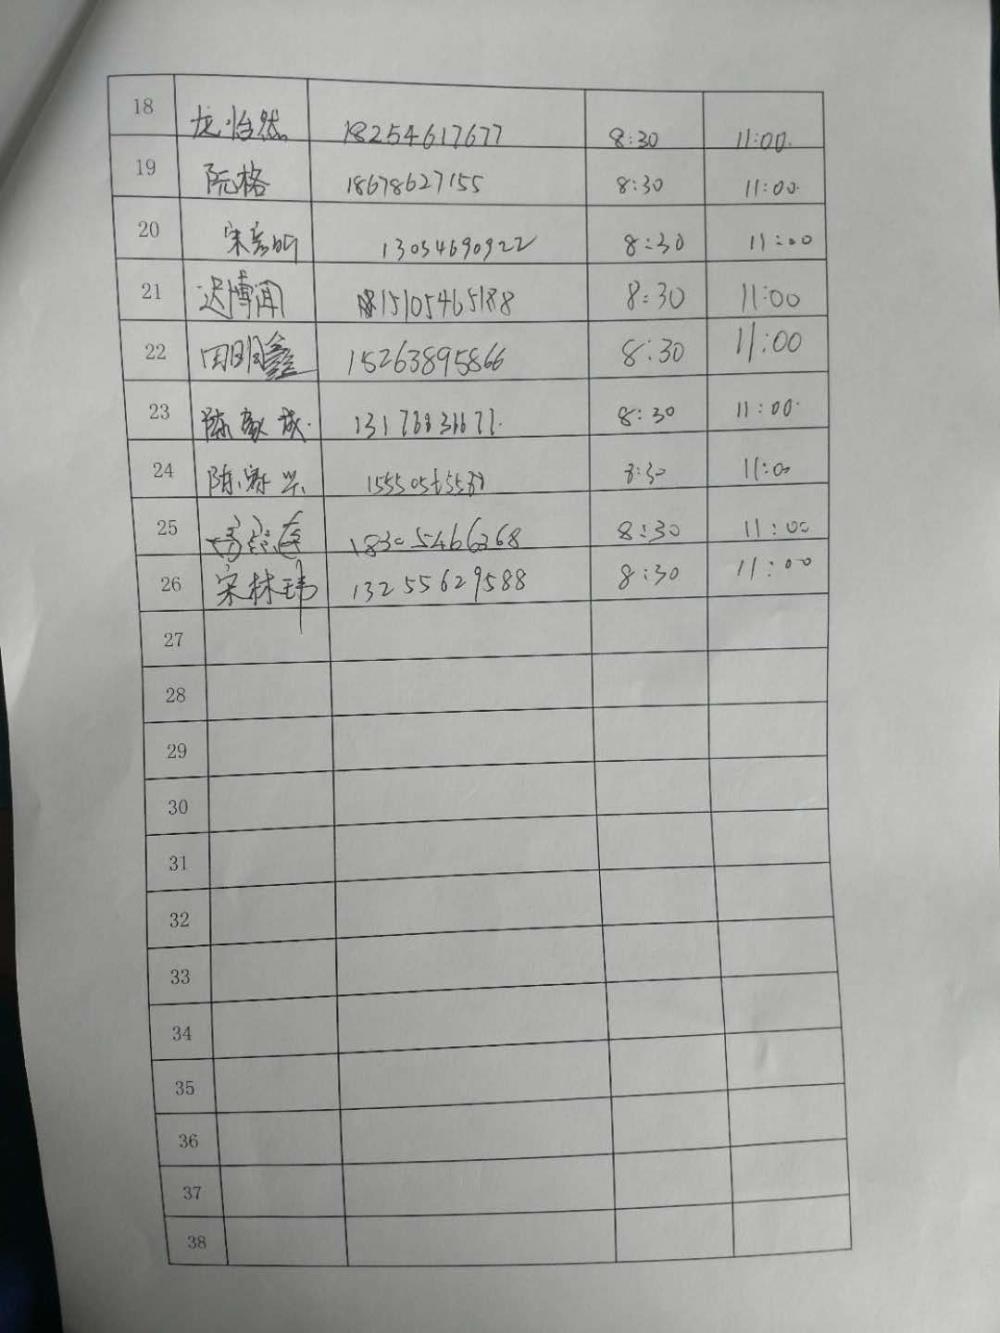 18 龙怡然 18254617677 8:30 11:00
19 阮格 18678627155 8:30 11:00
20 宋彦昕 13054690922 8:30 11:00
21 迟博闻 15105465188 8:30 11:00
22 田明鑫 15263895866 8:30 11:00
23 陈 8:30 11:00
24 陈 8:30 11:00
25 18305466268 8:30 11:00
26 宋林玮 13255629588 8:30 11:00
27
28
29
30
31
32
33
34
35
36
37
38